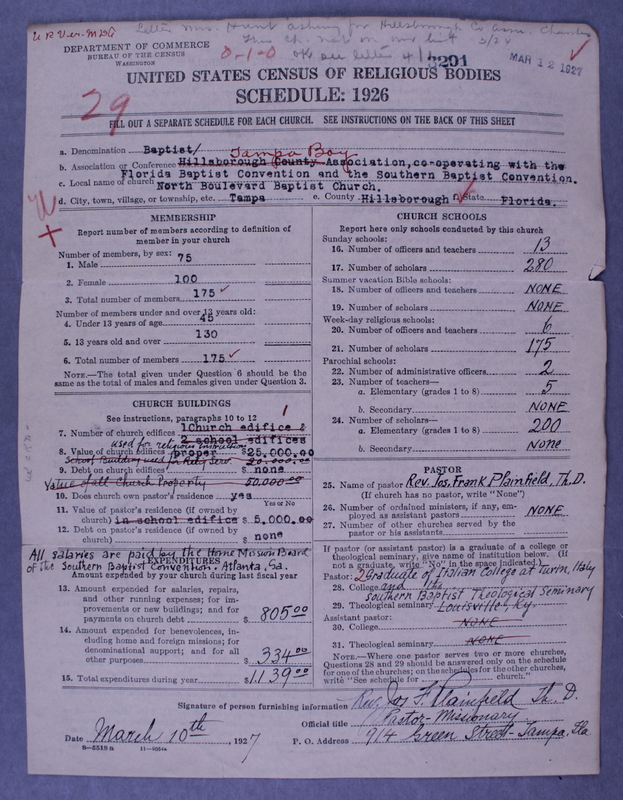 Letter Mrs. Brent asking for Hillsborough Co Assn. Churches
This ch. not on mrs list 3/31
DEPARTMENT OF COMMERCE
BUREAU OF THE CENSUS
WASHINGTON
0-1-0 OK see letter 4/
3201
MAR 12 1927
UNITED STATES CENSUS OF RELIGIOUS BODIES
SCHEDULE: 1926
29
FILL OUT A SEPARATE SCHEDULE FOR EACH CHURCH. SEE INSTRUCTIONS ON THE BACK OF THIS SHEET
a. Denomination Baptist/
Tampa Bay
b. Association or Conference Hillsborough County Association, co-operating with the
Florida Baptist Convention and the Southern Baptist Convention.
c. Local name of church
North Boulevard Baptist Church.
d. City, town, village, or township, etc. Tampa e. County Hillsborough f. State Florida.
MEMBERSHIP
Report number of members according to definition of
member in your church
Number of members, by sex:
1. Male 75
2. Female 100
3. Total number of members 175
Number of members under and over 13 years old:
4. Under 13 years of age 45
5. 13 years old and over 130
6. Total number of members 175
NOTE.—The total given under Question 6 should be the
same as the total of males and females given under Question 3.
CHURCH BUILDINGS
See instructions, paragraphs 10 to 12
1
7. Number of church edifices 1 Church edifice &
2 school edifices
used for religious instruction
8. Value of church edifices proper $25,000.00
School Buildings used for Relig. Serv. 20.000.00
9. Debt on church edifices $ none
Value of all Church Property 50,000.00
10. Does church own pastor's residence yes
Yes or No
11. Value of pastor's residence (if owned by
church) in school edifice $ 5,000.00
12. Debt on pastor's residence (if owned by
church) $ none
All salaries are paid by the Home Mission Board
of the Southern Baptist Convention. Atlanta, Ga.
EXPENDITURES
Amount expended by your church during last fiscal year
13. Amount expended for salaries, repairs,
and other running expenses; for im-
provements or new buildings; and for
payments on church debt $ 805.00
14. Amount expended for benevolences, in-
cluding home and foreign missions; for
denominational support; and for all
other purposes $ 334.00
15. Total expenditures during year $1139.00
CHURCH SCHOOLS
Report here only schools conducted by this church
Sunday schools:
16. Number of officers and teachers 13
17. Number of scholars 280
Summer vacation Bible schools:
18. Number of officers and teachers NONE
19. Number of scholars NONE
Week-day religious schools:
20. Number of officers and teachers 6
21. Number of scholars 175
Parochial schools:
22. Number of administrative officers 2
23. Number of teachers—
a. Elementary (grades 1 to 8) 5
b. Secondary NONE
24. Number of scholars—
a. Elementary (grades 1 to 8) 200
b. Secondary None
PASTOR
25. Name of pastor Rev. Jos. Frank Plainfield, Th. D.
(If church has no pastor, write "None")
26. Number of ordained ministers, if any, em-
ployed as assistant pastors NONE
27. Number of other churches served by the
pastor or his assistants
If pastor (or assistant pastor) is a graduate of a college or
theological seminary, give name of institution below. (If
not a graduate, write "No" in the space indicated.)
Pastor: 2 Graduate of Italian College at Turin, Italy
28. College and the
Southern Baptist Theological Seminary
29. Theological seminary Louisville, Ky.
Assistant pastor:
30. College NONE
31. Theological seminary NONE
NOTE.—Where one pastor serves two or more churches,
Questions 28 and 29 should be answered only on the schedule
for one of the churches; on the schedules for the other churches,
write "See schedule for church."
Signature of person furnishing information Rev. Jos. F. Plainfield Th. D.
Official title Pastor-Missionary
Date March 10th, 1927 P. O. Address 914 Green Street-Tampa, Fla
8-5518 a 11-9054a